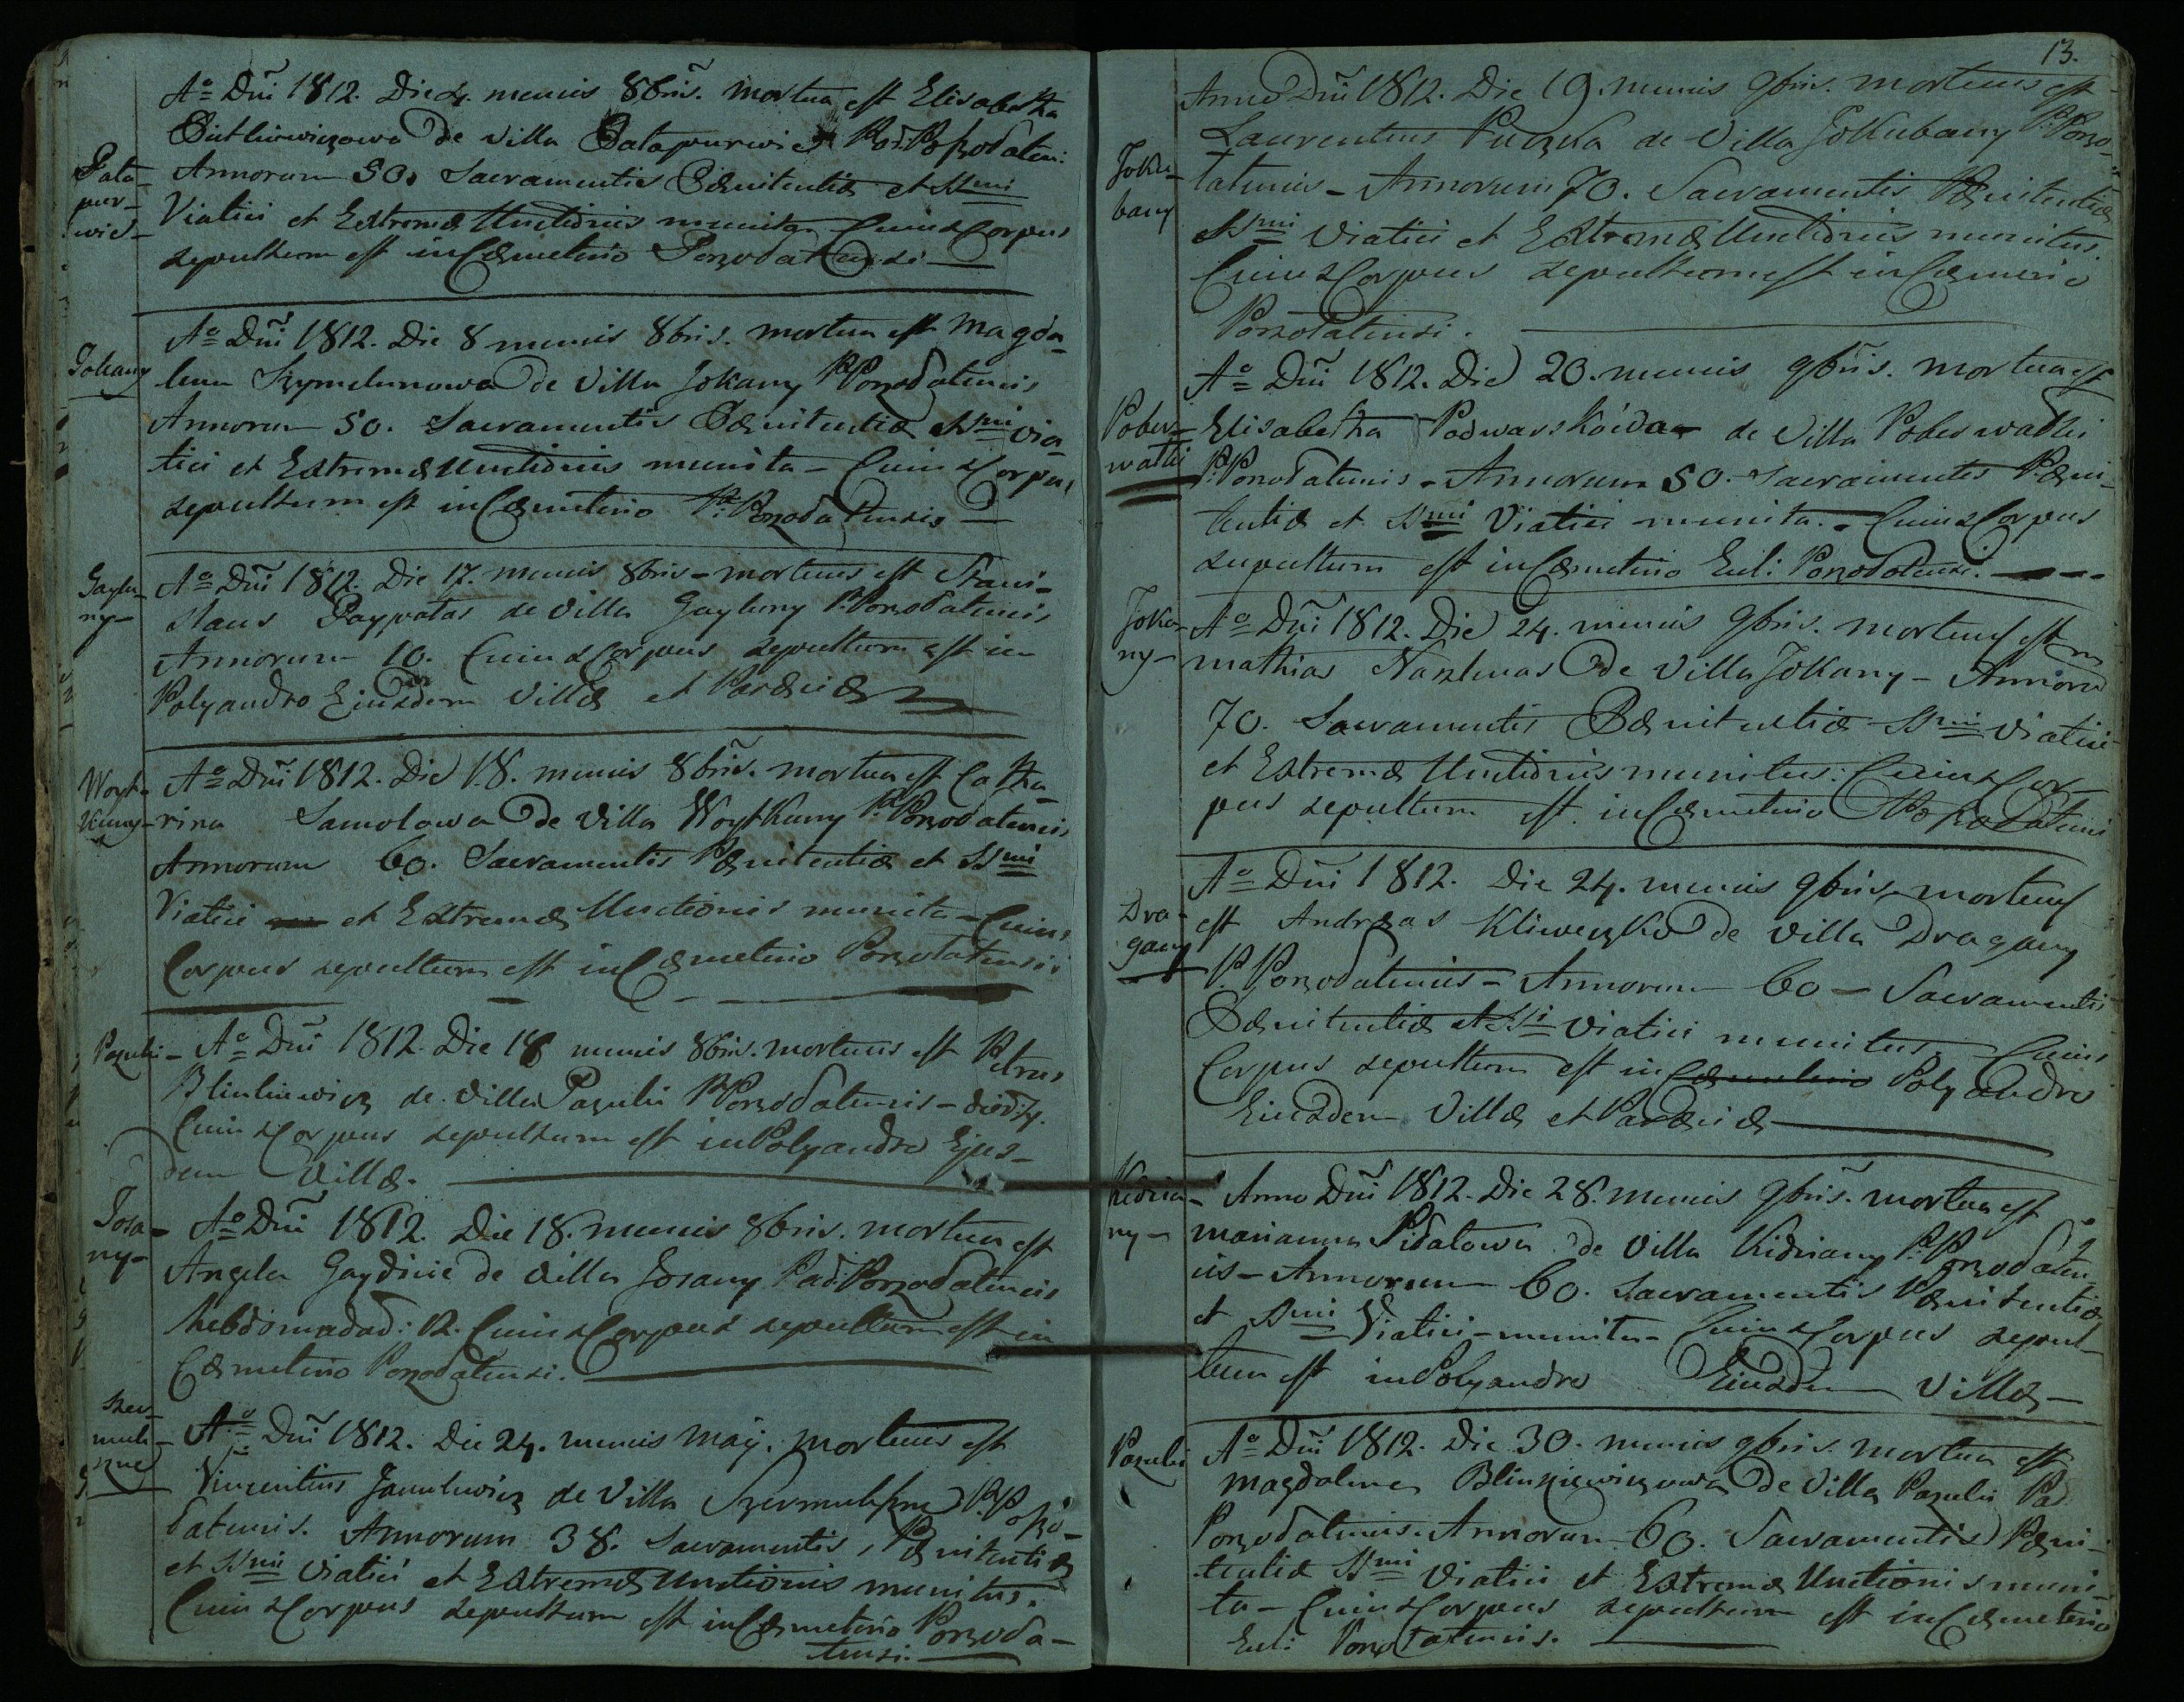 Pata-
pur-
wie-
Aº Dñi 1812. Die 4. mensis 8bris. mortua est Elisabetha
de Villa Patapurwie Par: Pozodaten:
Annorum 50. Sacramentis Pœnitentiæ et SSmi
Viatici et Extremæ Unctionis munita Cuius Corpus
sepultum est in Cœmeterio Pozodatensi
Jokany
Aº Dñi 1812. Die 8 mensis 8bris. mortua est Magda-
lena Szymelunowa de Villa Jokany P. Pozodatensis
Annorum 50. Sacramentis Pœnitentiæ SSmi Via-
tici et Extremæ Unctionis munita - Cuius Corpus
sepultum est in Cœmeterio P. Pozodatensis
Gaylu-
ny-
Aº Dñi 1812. Die 17. mensis 8bris - mortuus est Stani-
slaus de Villa Gayluny P. Pozodatensis
Annorum 10. Cuius Corpus sepultum est in
Polyandro Eiusdem Villæ et Parœciæ
Woyt-
kuny-
Aº Dñi 1812. Die 18. mensis 8bris. mortua est Catha-
rina Samolowa de Villa Woytkuny P. Pozodatensis
Annorum 60. Sacramentis Pœnitentiæ et SSmi
Viatici et Extremæ Unctionis munita - Cuius
Corpus sepultum est in Cœmeterio Pozodatensis
Pazuli-
Aº Dñi 1812. Die 18 mensis 8bris. mortuus est Petrus
de Villa Pazulu P. Pozodatensis -
Cuius Corpus sepultum est in Polyandro Ejus-
dem Villæ.
Josa-
ny-
Aº Dñi 1812. Die 18. mensis 8bris. mortua est
Angela Gaydzie de Villa Josany Par. Pozodatensis
hebdomadad: 12. Cuius Corpus sepultum est in
Cœmeterio Pozodatensi.
Szer-
muk-
szne
Aº Dñi 1812. Die 24. mensis Maij. mortuus est
Vincentius de Villa Szermukszne P. Pozo-
datensis. Annorum 38. Sacramentis, Pœnitentiæ
et SSmi Viatici et Extremæ Unctionis munitus.
Cuius Corpus sepultum est in Cœmeterio Pozoda-
tensi.
13.
Joku-
bany
Anno Dñi 1812. Die 19. mensis 9bris. mortuus est
Laurentius Puczka de Villa Jokubany P. Pozo-
tatensis - Annorum 70. Sacramentis Pœnitentiæ
SSmi Viatici et Extremæ Unctionis munitus.
Cuius Corpus sepultum est in Cœmerio
Pozodatensi.
Pober-
watki
Aº Dñi 1812. Die 20. mensis 9bris. mortua est
Elisabetha de Villa Poberwatki
P. Pozodatensis - Annorum 50. Sacramentis Pœni-
tentiæ et SSmi Viatici munita. - Cuius Corpus
sepultum est in Cœmeterio Euli: Pozodatensi.
Joka-
ny-
Aº Dñi 1812. Die 24. mensis 9bris. mortuus est
Mathias de Villa Jokany - Annoru
70. Sacramentis Pœnitentiæ SSmi Viatici
et Extremæ Unctionis munitus: Cuius Cor-
pus sepultum est in Cœmeterio Pozodatensi
Dra-
gany
Aº Dñi 1812. Die 24. mensis 9bris. mortuus
est Andreas Kliweczko de Villa Dragany
P. Pozodatensis - Annorum 60 - Sacramentis
Pœnitentiæ et SSi Viatici munitus. Cuius
Corpus sepultum est in Cœmeterio Polyandro
Eiusdem Villæ et Parœciæ
Kidzia-
ny-
Anno Dñi 1812. Die 28. mensis 9bris. mortua est
Marianna Pidalowa de Villa Kidziany P. Pozodaten-
is - Annorum 60. Sacramentis Pœnitentiæ
et SSmi Viatici - munita - Cuius Corpus sepul-
tum est in Polyandro Eiusdem Villæ -
Pazulu
Aº Dñi 1812. Die 30. mensis 9bris. mortua est
Magdalena de Villa Pazulu Par
Pozodatensis. Annorum 60. Sacramentis Pœni-
tentiæ SSmi Viatici et Extremæ Unctionis muni-
ta - Cuius Corpus sepultum est in Cœmeterio
Euli: Pozodatensis.